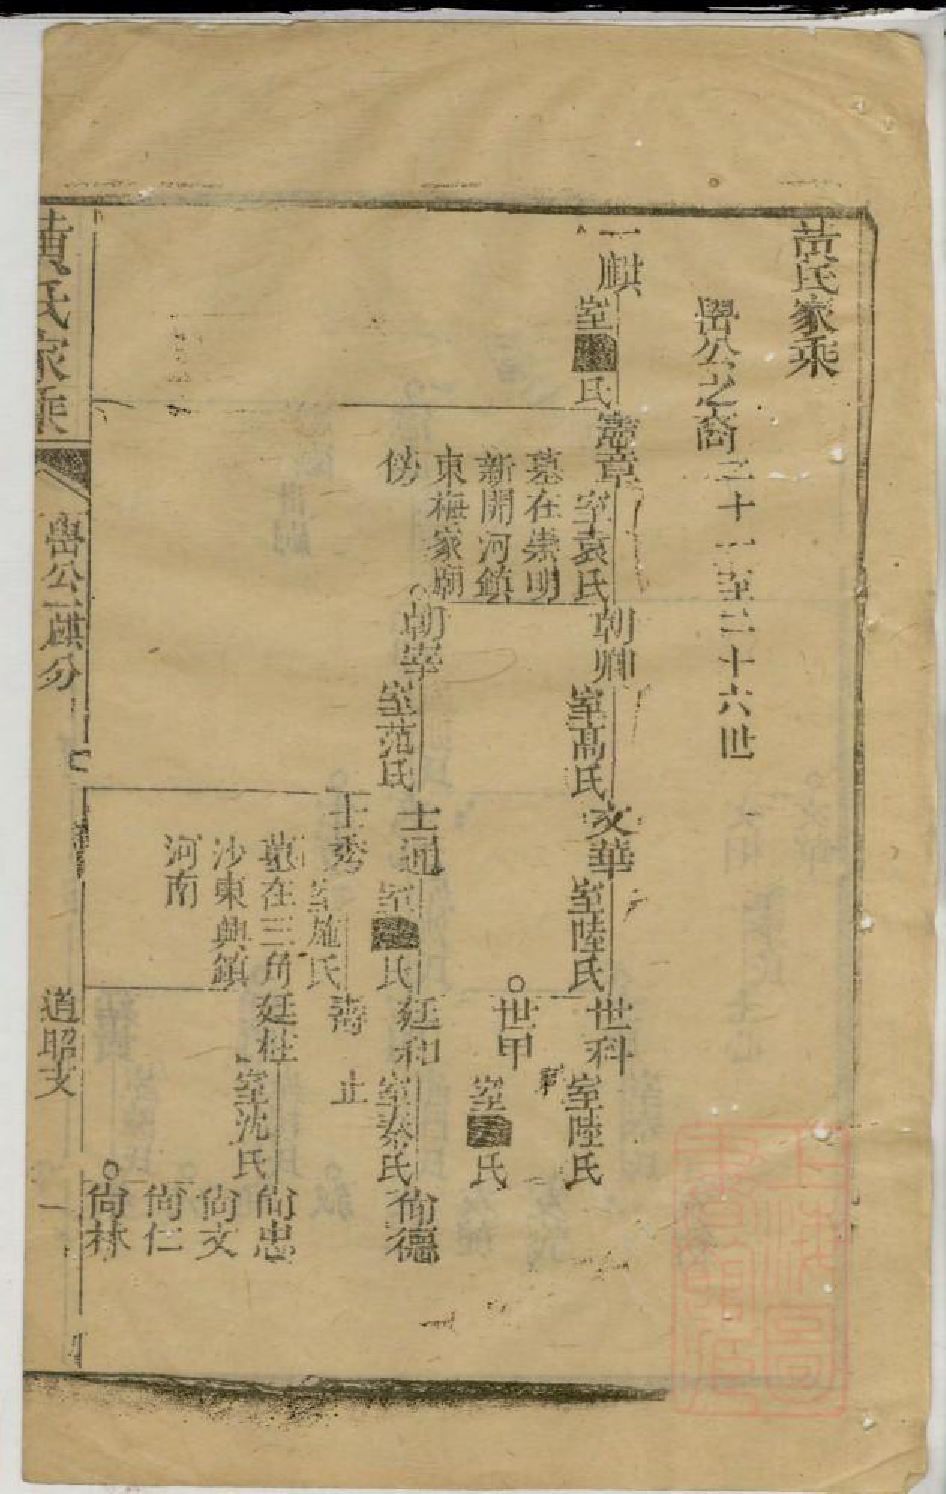 黃氏家乘
嚳公之裔
二十一至二十六世
一麒
室
氏
憲章
室袁氏
墓在崇明
新開河鎮
東梅家廟
傍
朝卿
室高氏
朝宰
室范氏
文華
室陸氏
士通
室
氏
士秀
室施氏
墓在三角
沙東興鎮
河南
世科
室陸氏
世甲
室
氏
廷和
室秦氏
壽
止
廷柱
室沈氏
尚德
尚忠
尚文
尚仁
尚林
黃氏家乘
嚳公一麒分
道昭支
一
上海圖書館藏